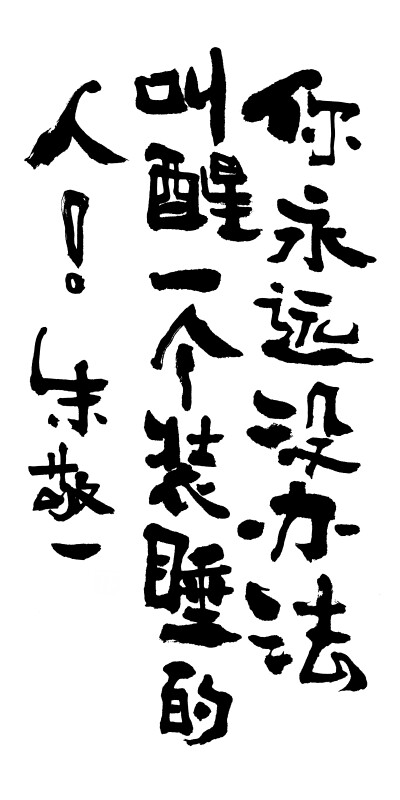 你永远没办法
叫醒一个装睡的
人！朱敬一